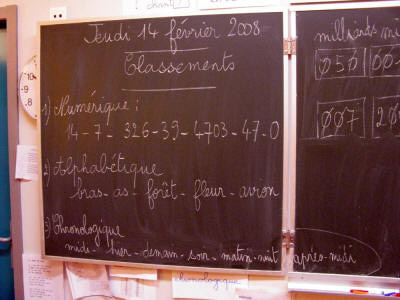 Jeudi 14 février 2008
Classements
1) Numérique :
14 - 7 - 326 - 39 - 4703 - 47 - 0
2) Alphabétique
bras - as - forêt - fleur - avion
3) Chronologique
midi - hier - demain - soir - matin - nuit après-midi
chronologique
milliards mi
050 00
007 20